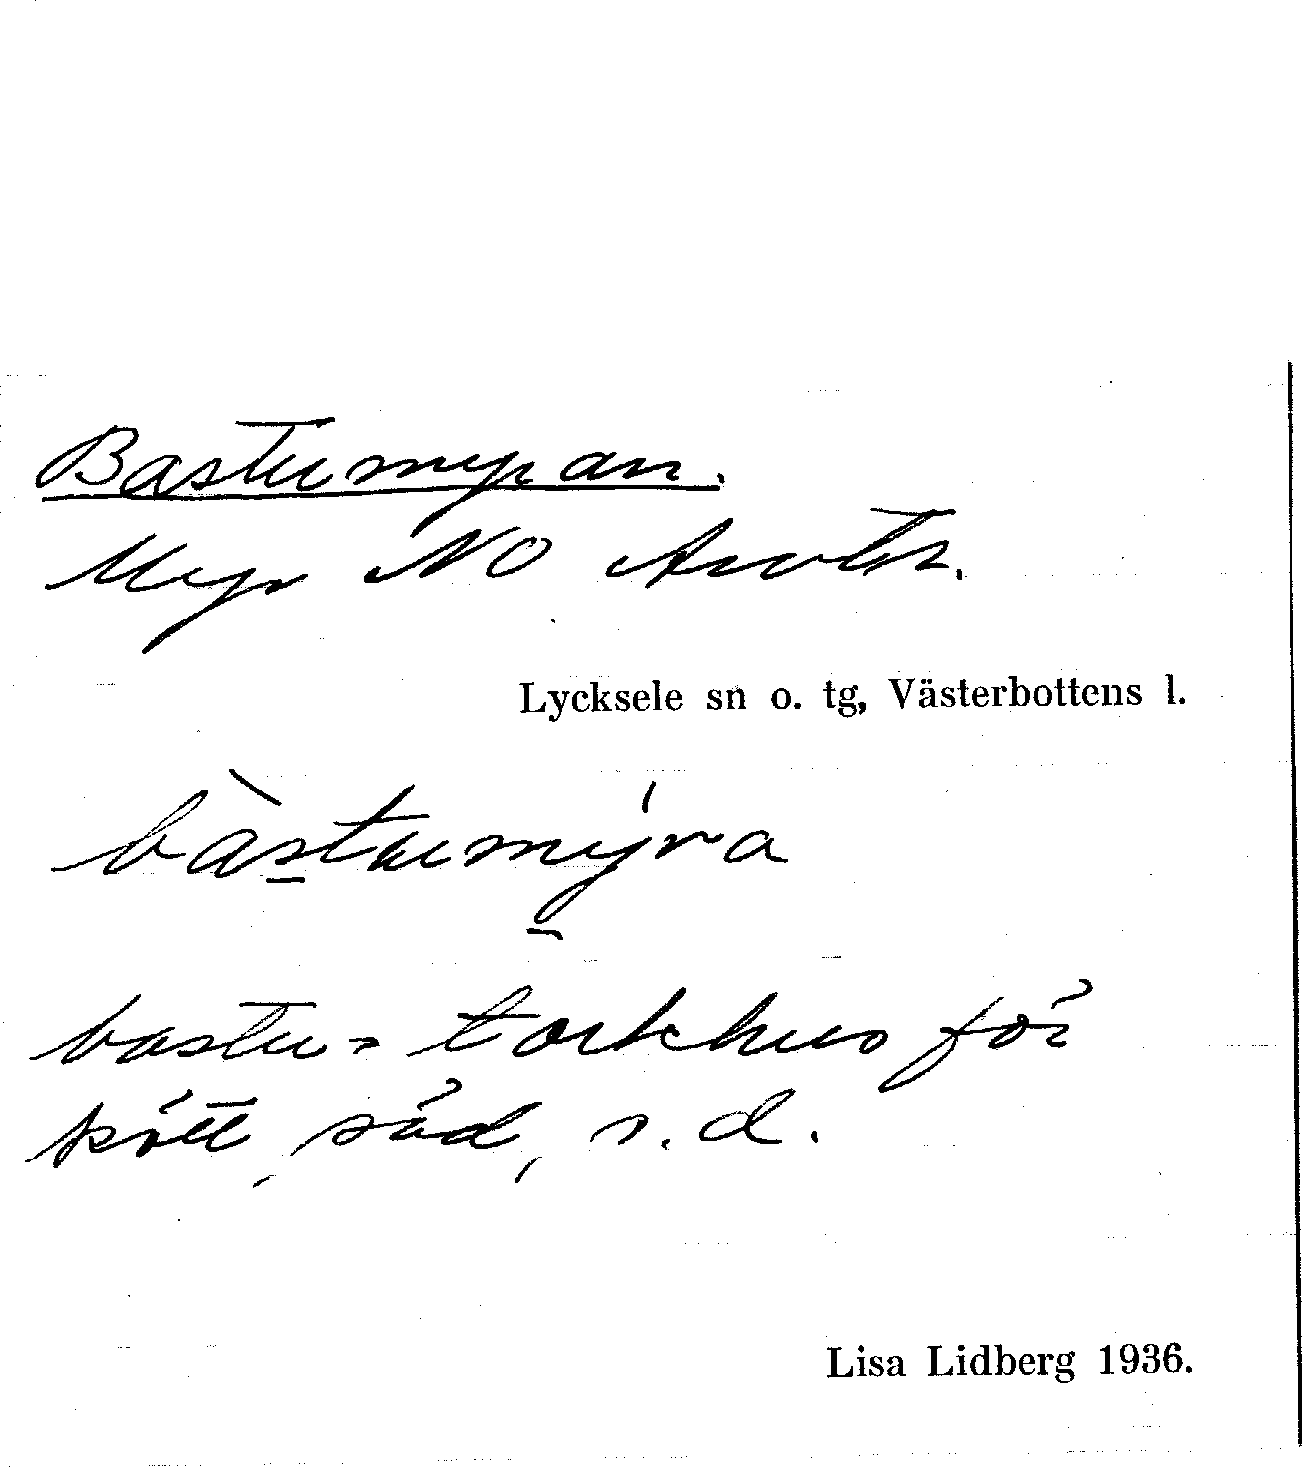 Bastumyran.
Myr NO
Lycksele sn o. tg, Västerbottens l.
bàstumýra
bastu = torkhus för
kött, säd, s.d.
Lisa Lidberg 1936.